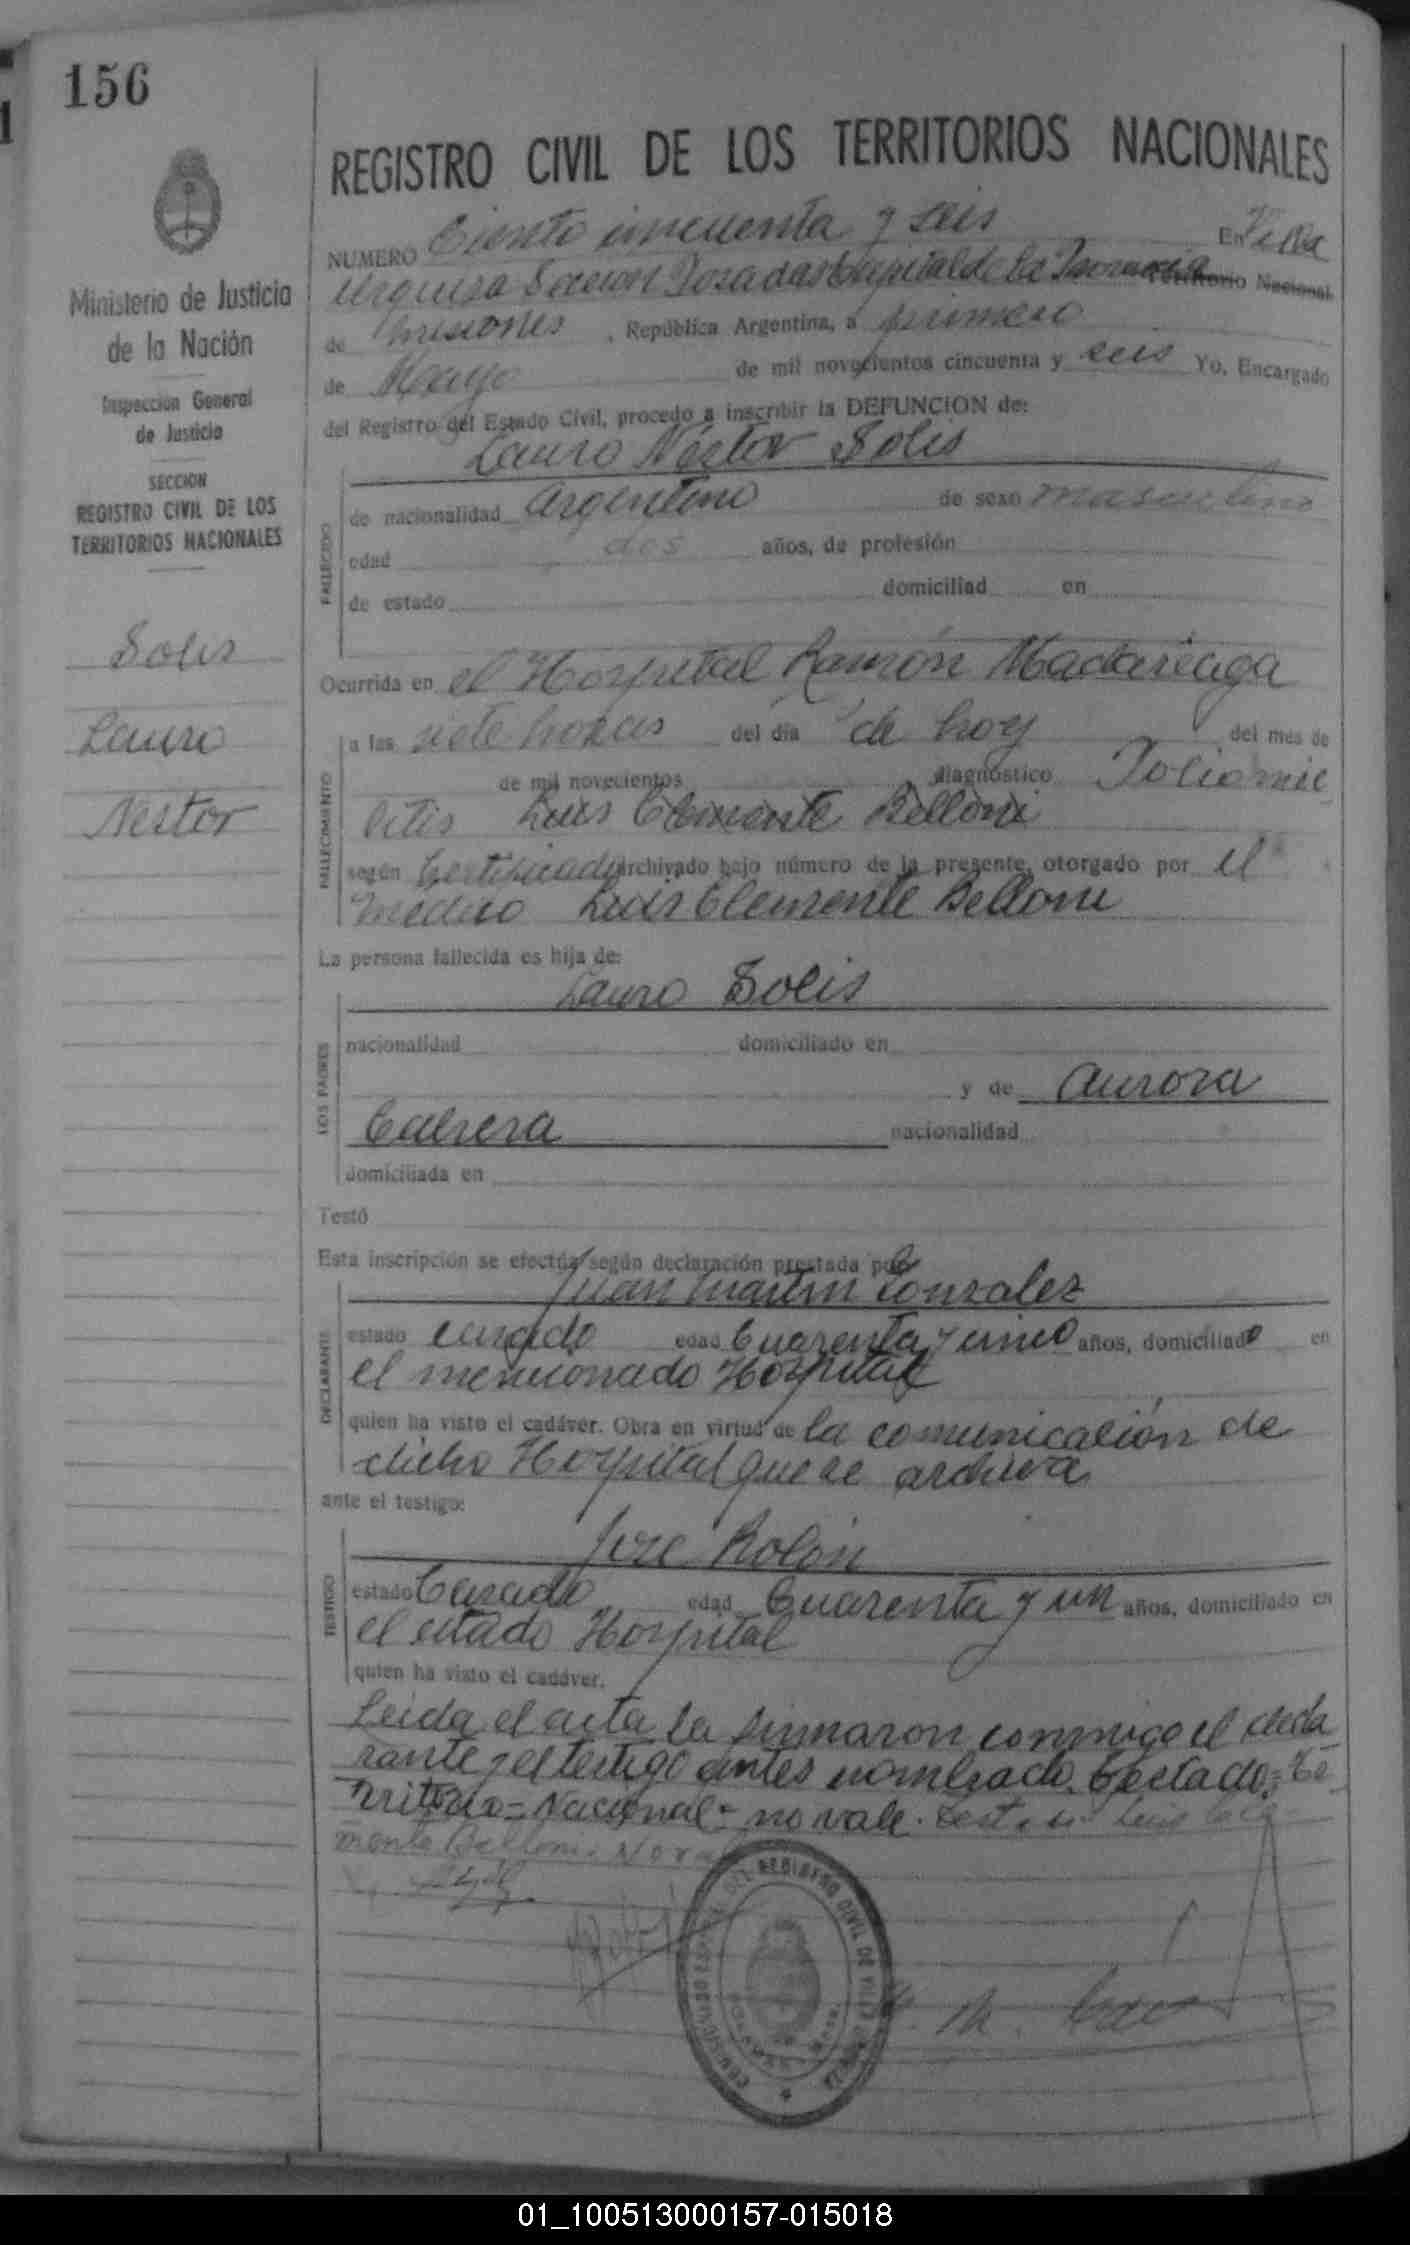 156
REGISTRO CIVIL DE LOS TERRITORIOS NACIONALES
Ministerio de Justicia
de la Nación
Inspección General
de Justicia
SECCION
REGISTRO CIVIL DE LOS
TERRITORIOS NACIONALES
Solis
Lauro
Nestor
NUMERO Ciento cincuenta y seis En Villa
Urquiza Seccion Posadas Capital de la Provincia Territorio Nacional
de Misiones , República Argentina, a primero
de Mayo de mil novecientos cincuenta y seis Yo, Encargado
del Registro del Estado Civil, procedo a inscribir la DEFUNCION de:
Lauro Néstor Solis
FALLECIDO
de nacionalidad argentino de sexo masculino
edad dos años, de profesión
de estado domiciliad en
Ocurrida en el Hospital Ramón Madariaga
FALLECIMIENTO
a las siete horas del día de hoy del mes de
de mil novecientos diagnóstico Poliomie
litis Luis Clemente Belloni
según Certificado archivado bajo número de la presente, otorgado por el
médico Luis Clemente Belloni
La persona fallecida es hija de:
Lauro Solis
LOS PADRES
nacionalidad domiciliado en
y de Aurora
Cabrera nacionalidad
domiciliada en
Testó
Esta inscripción se efectúa según declaración prestada por
Juan Martin Gonzalez
DECLARANTE
estado casado edad Cuarenta y cinco años, domiciliado en
el mencionado Hospital
quien ha visto el cadáver. Obra en virtud de la comunicación de
dicho Hospital que se archiva
ante el testigo:
José Rolón
TESTIGO
estado Casado edad Cuarenta y un años, domiciliado en
el citado Hospital
quien ha visto el cadáver.
Leida el acta la firmaron conmigo el decla
rante y el testigo antes nombrado. Testado: Te
rritorio = Nacional = no vale. Testado: Luis Cle
mente Belloni: No vale
COMISIONADO ESPECIAL DEL REGISTRO CIVIL DE VILLA URQUIZA
POSADAS
01_100513000157-015018